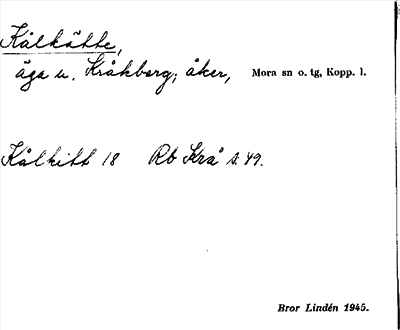 Kålkätte,
äga u. Kråkberg; åker, Mora sn o. tg, Kopp. l.
Kålkitt 18 Rb Krå s. 49.
Bror Lindén 1945.